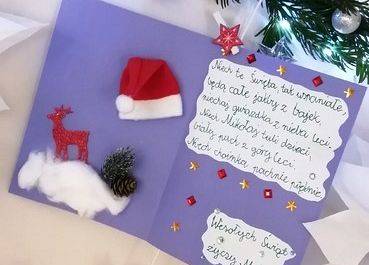 Niech te Święta, tak wspaniałe,
będą całe jakby z bajek,
niechaj gwiazdka z nieba leci,
Niech Mikołaj tuli dzieci,
biały puch z góry leci
Niech choinka pachnie pięknie
Wesołych Świąt
życzy